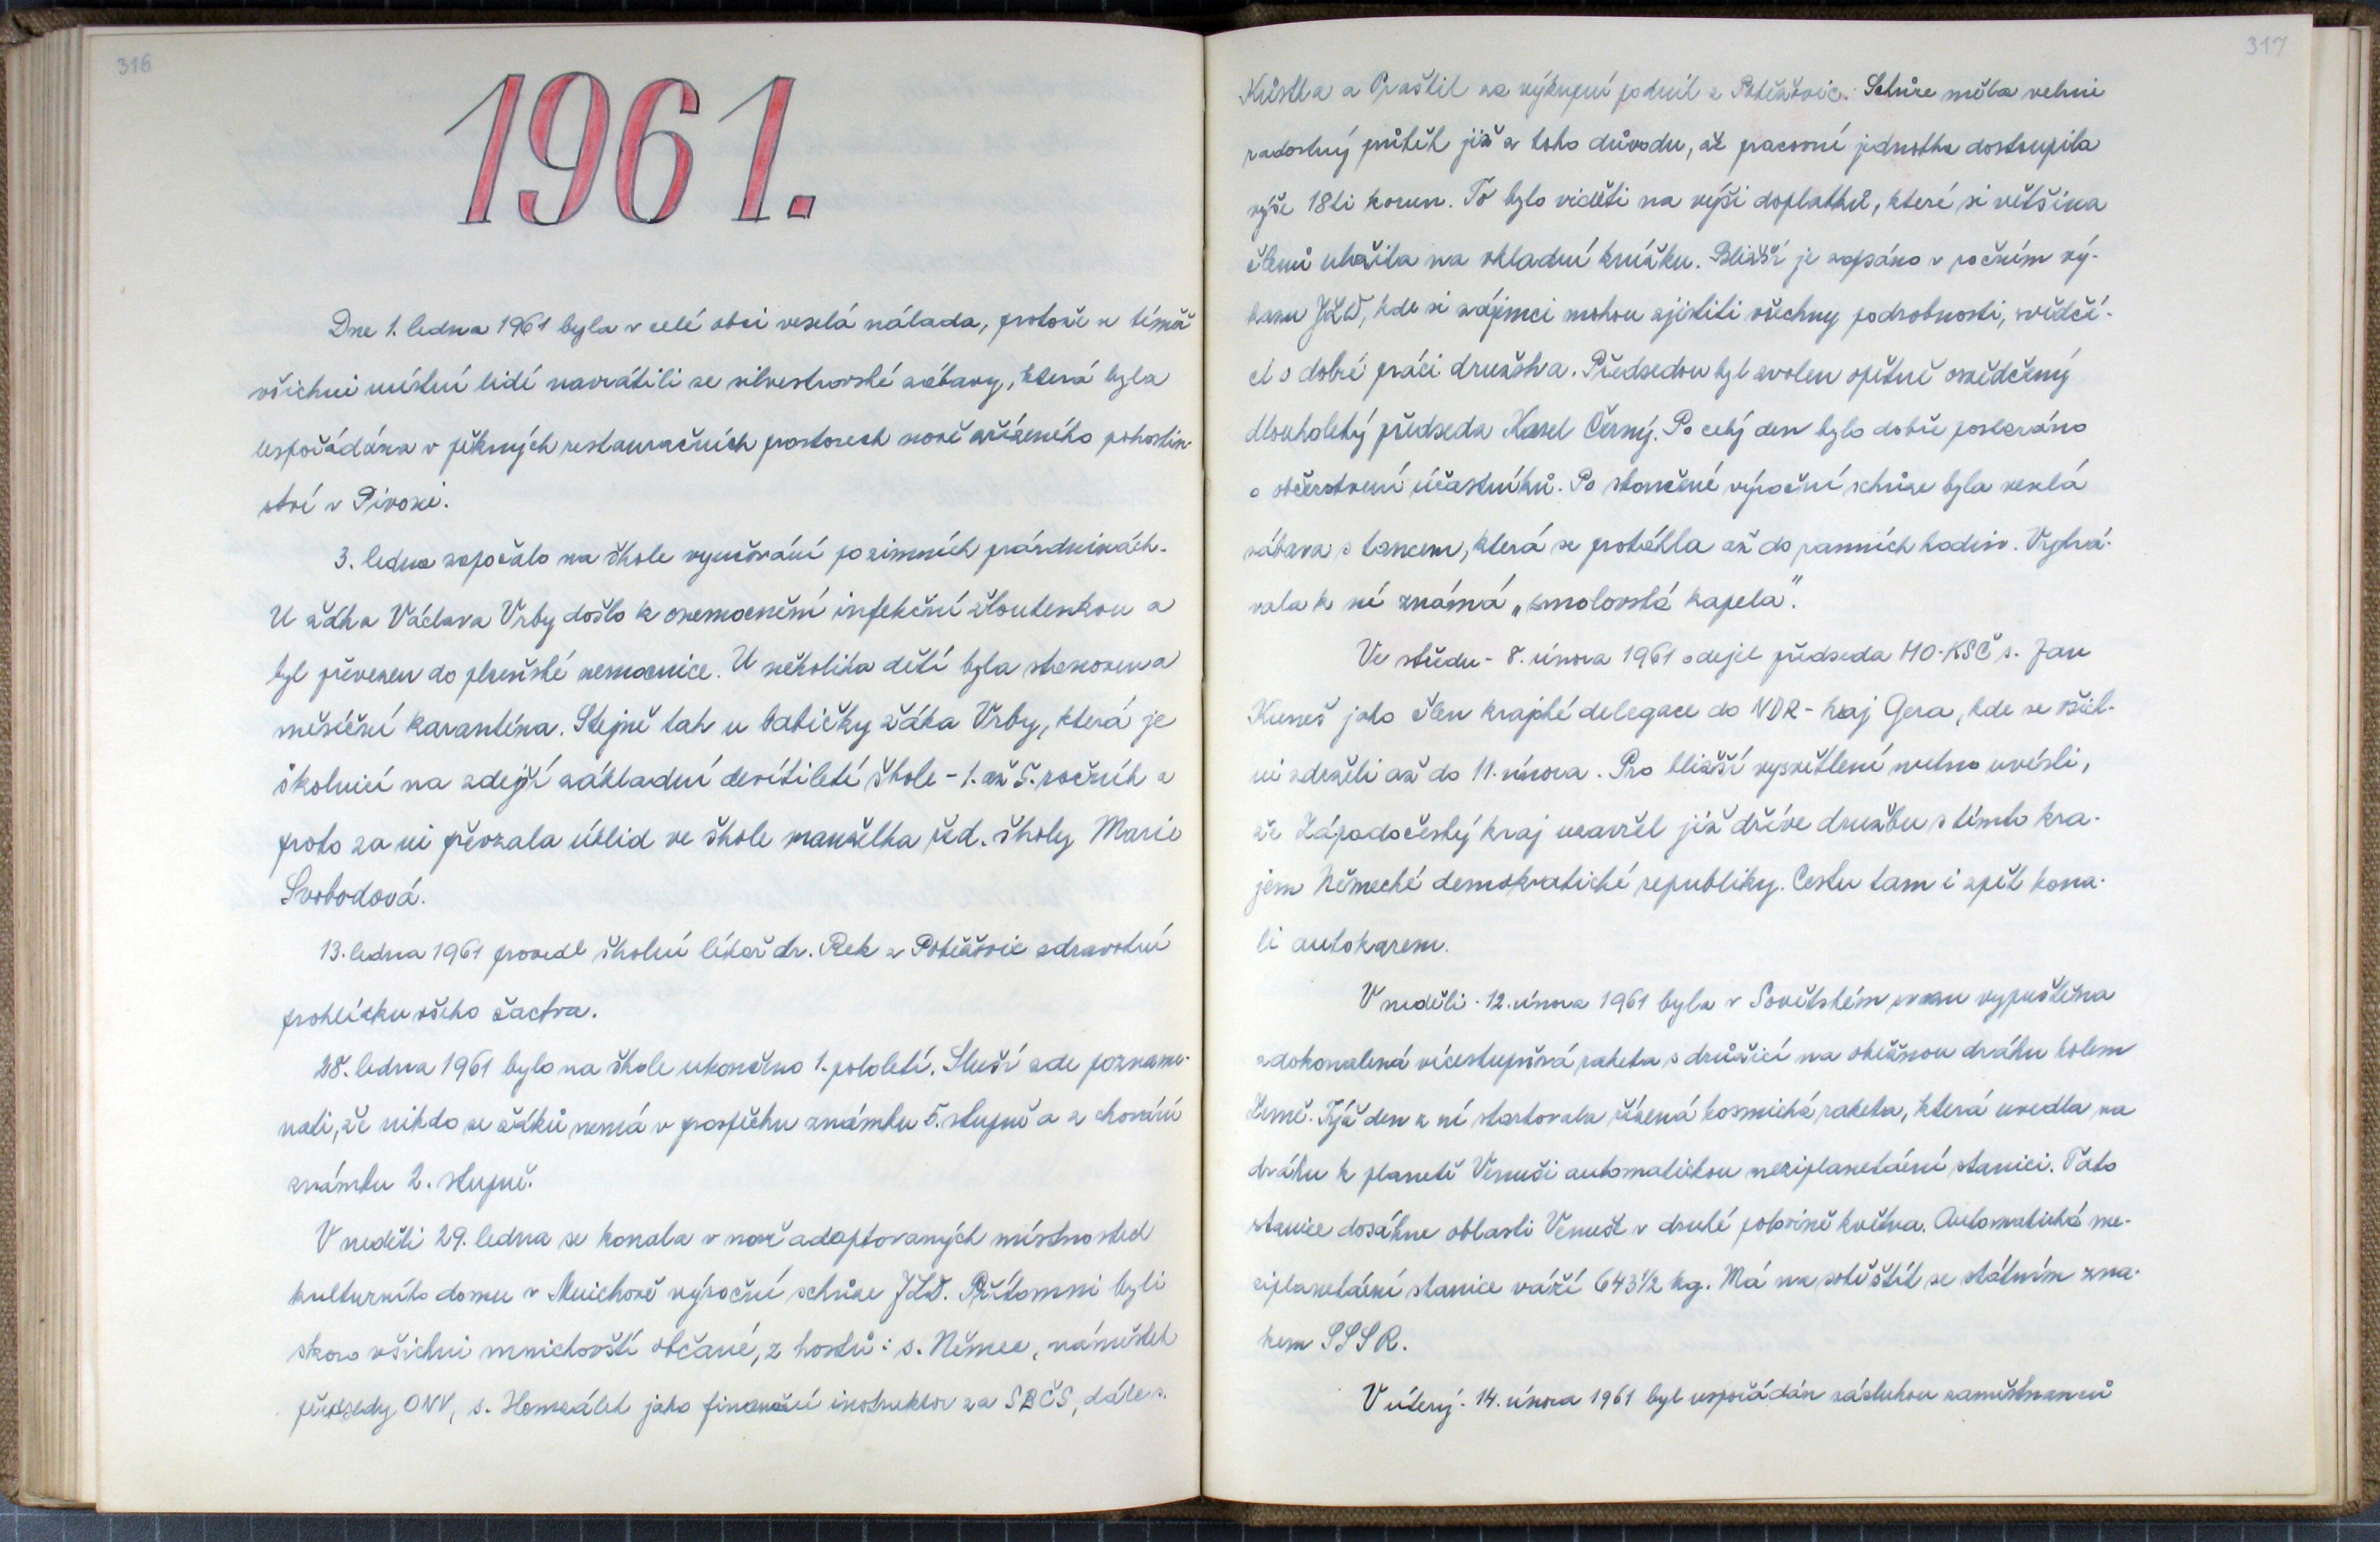 316
1961.
Dne 1. ledna 1961 byla v celé obci veselá nálada, protože se téměř
všichni místní lidé navrátili se silvestrovské zábavy, která byla
uspořádána v pěkných restauračních prostorech nově zřízeného pohostin-
ství v Pivoni.
3. ledna započalo na škole vyučování po zimních prázdninách.
U žáka Václava Vrby došlo k onemocnění infekční žloutenkou a
byl převezen do plzeňské nemocnice. U několika dětí byla stanovena
měsíční karanténa. Stejně tak u babičky žáka Vrby, která je
školnicí na zdejší základní devítileté škole - 1. až 5. ročník a
proto za ni převzala úklid ve škole manželka řed. školy Marie
Svobodová.
13. ledna 1961 provedl školní lékař dr. Rek z Poběžovic zdravotní
prohlídku všeho žactva.
28. ledna 1961 bylo na škole ukončeno 1. pololetí. Sluší zde pozname-
nati, že nikdo ze žáků nemá v prospěchu známku 5. stupně a z chování
známku 2. stupně.
V neděli 29. ledna se konala v nově adaptovaných místnostech
kulturního domu v Mnichově výroční schůze JZD. Přítomni byli
skoro všichni mnichovští občané, z hostů: s. Němec, náměstek
předsedy ONV, s. Homzálek jako finanční instruktor za SBČS, dále s.
317
Kůstka a Praštil za výkupní podnik z Poběžovic. Schůze měla velmi
radostný průběh již z toho důvodu, že pracovní jednotka dostoupila
výše 18ti korun. To bylo viděti na výši doplatků, které si většina
členů uložila na vkladní knížku. Bližší je zapsáno v ročním vý-
kazu JZD, kde si zájemci mohou zjistiti všechny podrobnosti, svědčí-
cí o dobré práci družstva. Předsedou byl zvolen opětně osvědčený
dlouholetý předseda Karel Černý. Po celý den bylo dobře postaráno
o občerstvení účastníků. Po skončené výroční schůze byla veselá
zábava s tancem, která se protáhla až do ranních hodin. Vyhrá-
vala k ní známá „smolovská kapela".
Ve středu - 8. února 1961 odejel předseda MO-KSČ s. Jan
Kuneš jako člen krajské delegace do NDR - kraj Gera, kde se všich-
ni zdrželi až do 11. února. Pro bližší vysvětlení nutno uvésti,
že Západočeský kraj uzavřel již dříve družbu s tímto kra-
jem Německé demokratické republiky. Cestu tam i zpět kona-
li autokarem.
V neděli - 12. února 1961 byla v Sovětském svazu vypuštěna
zdokonalená vícestupňová raketa s družicí na oběžnou dráhu kolem
Země. Týž den z ní startovala řízená kosmická raketa, která uvedla na
dráhu k planetě Venuši automatickou meziplanetární stanici. Tato
stanice dosáhne oblasti Venuše v druhé polovině května. Automatická me-
ziplanetární stanice váží 643 1/2 kg. Má na sobě štít se státním zna-
kem SSSR.
V úterý - 14. února 1961 byl uspořádán zásluhou zaměstnanců